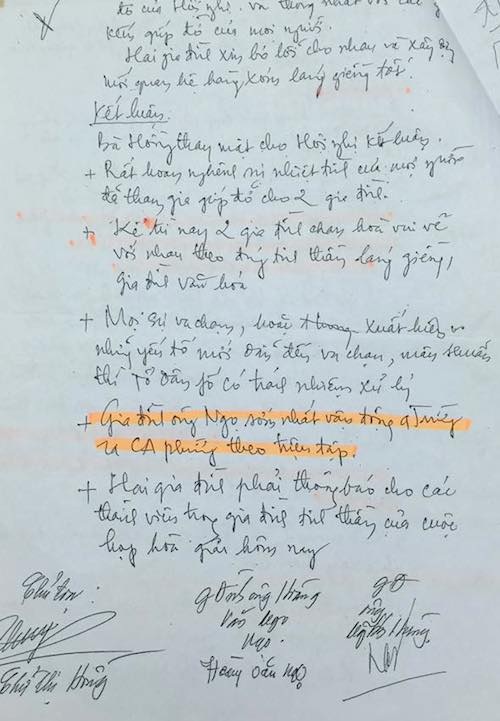 đỡ của Hội nghị và thống nhất với các ý
kiến góp đỡ của mọi người.
Hai gia đình xin bỏ lỗi cho nhau và xây dựng
mối quan hệ hàng xóm láng giềng tốt.
Kết luận.
Bà Hồng thay mặt cho Hội nghị kết luận.
+ Rất hoan nghênh sự nhiệt tình của mọi người
đã tham gia góp đỡ cho 2 gia đình.
+ Kể từ nay 2 gia đình chan hoà vui vẻ
với nhau theo đúng tình thần láng giềng,
gia đình văn hoá
+ Mọi sự va chạm, hoặc xuất hiện
những yếu tố mới dẫn đến va chạm, mâu thuẫn
thì Tổ dân fố có trách nhiệm xử lý
+ Gia đình ông Ngọ sớm nhất vận động
ra CA phường theo triệu tập.
+ Hai gia đình phải thông báo cho các
thành viên trong gia đình tinh thần của cuộc
họp hoà giải hôm nay
Hùng
Ngọ.
Chử Thị Hồng
Hoàng Văn Ngọ